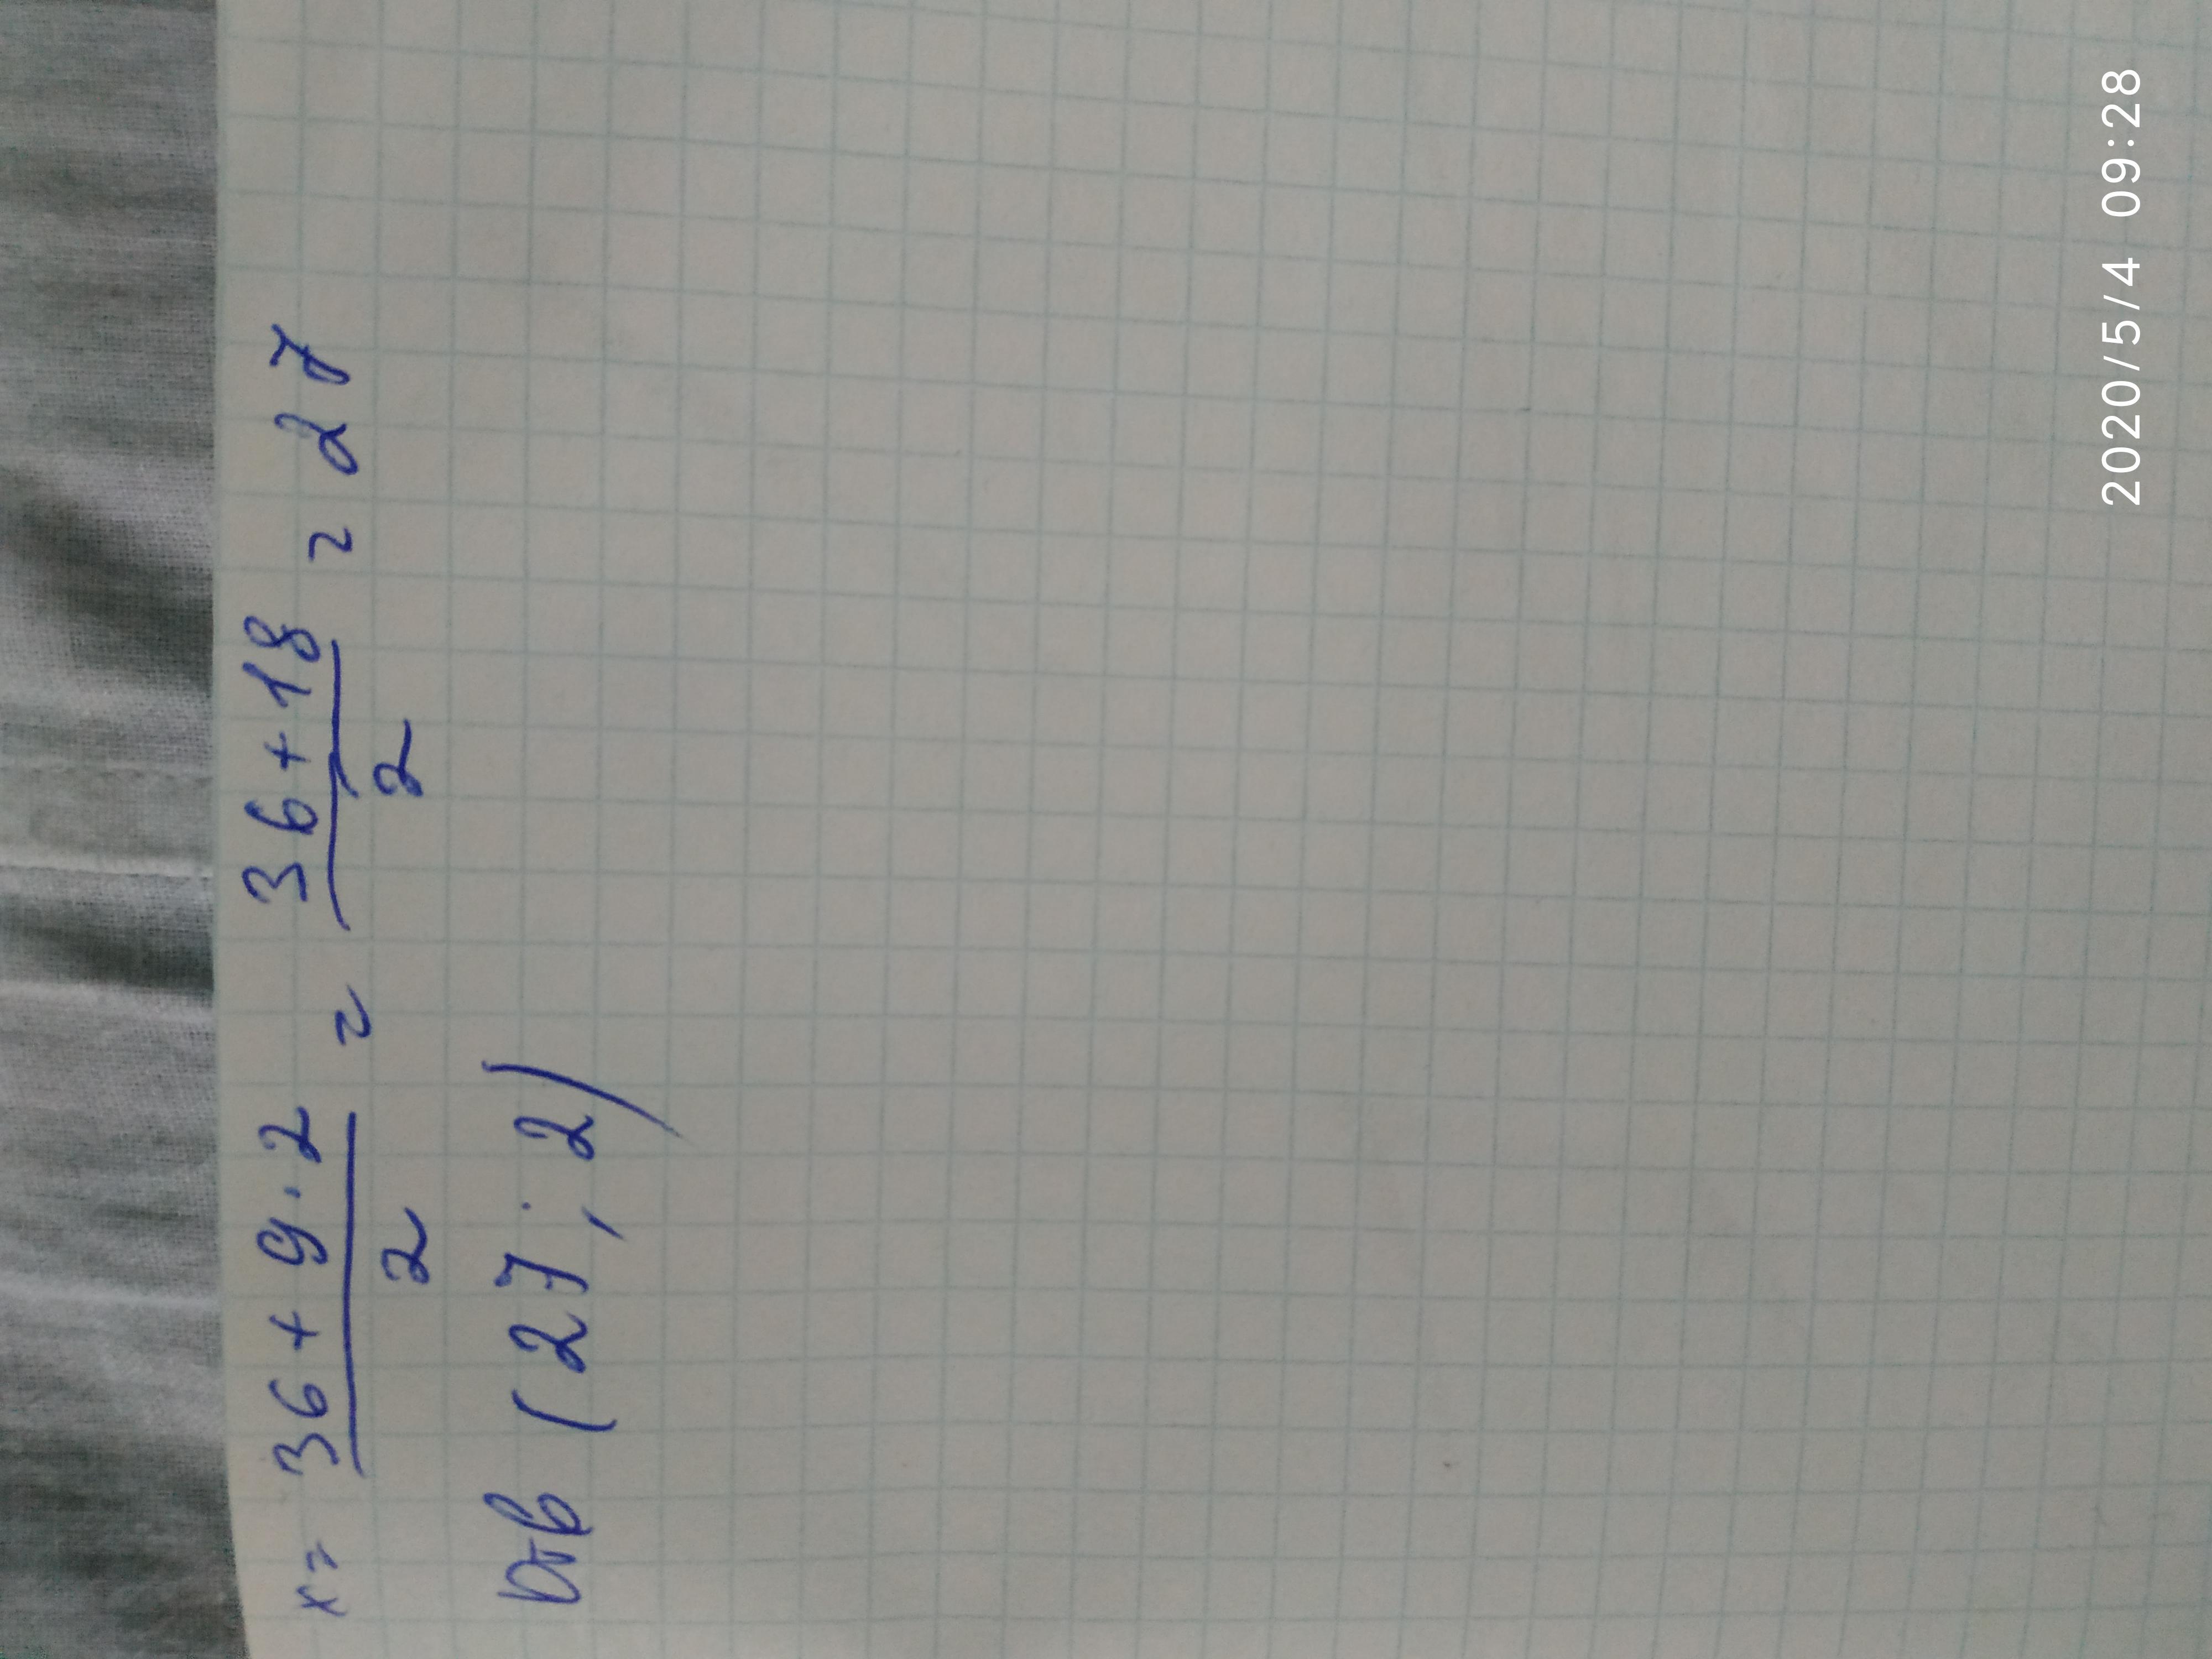 x = \frac{36+9·2}{2} = \frac{36+18}{2} = 27
Отв (27; 2)
2020/5/4 09:28